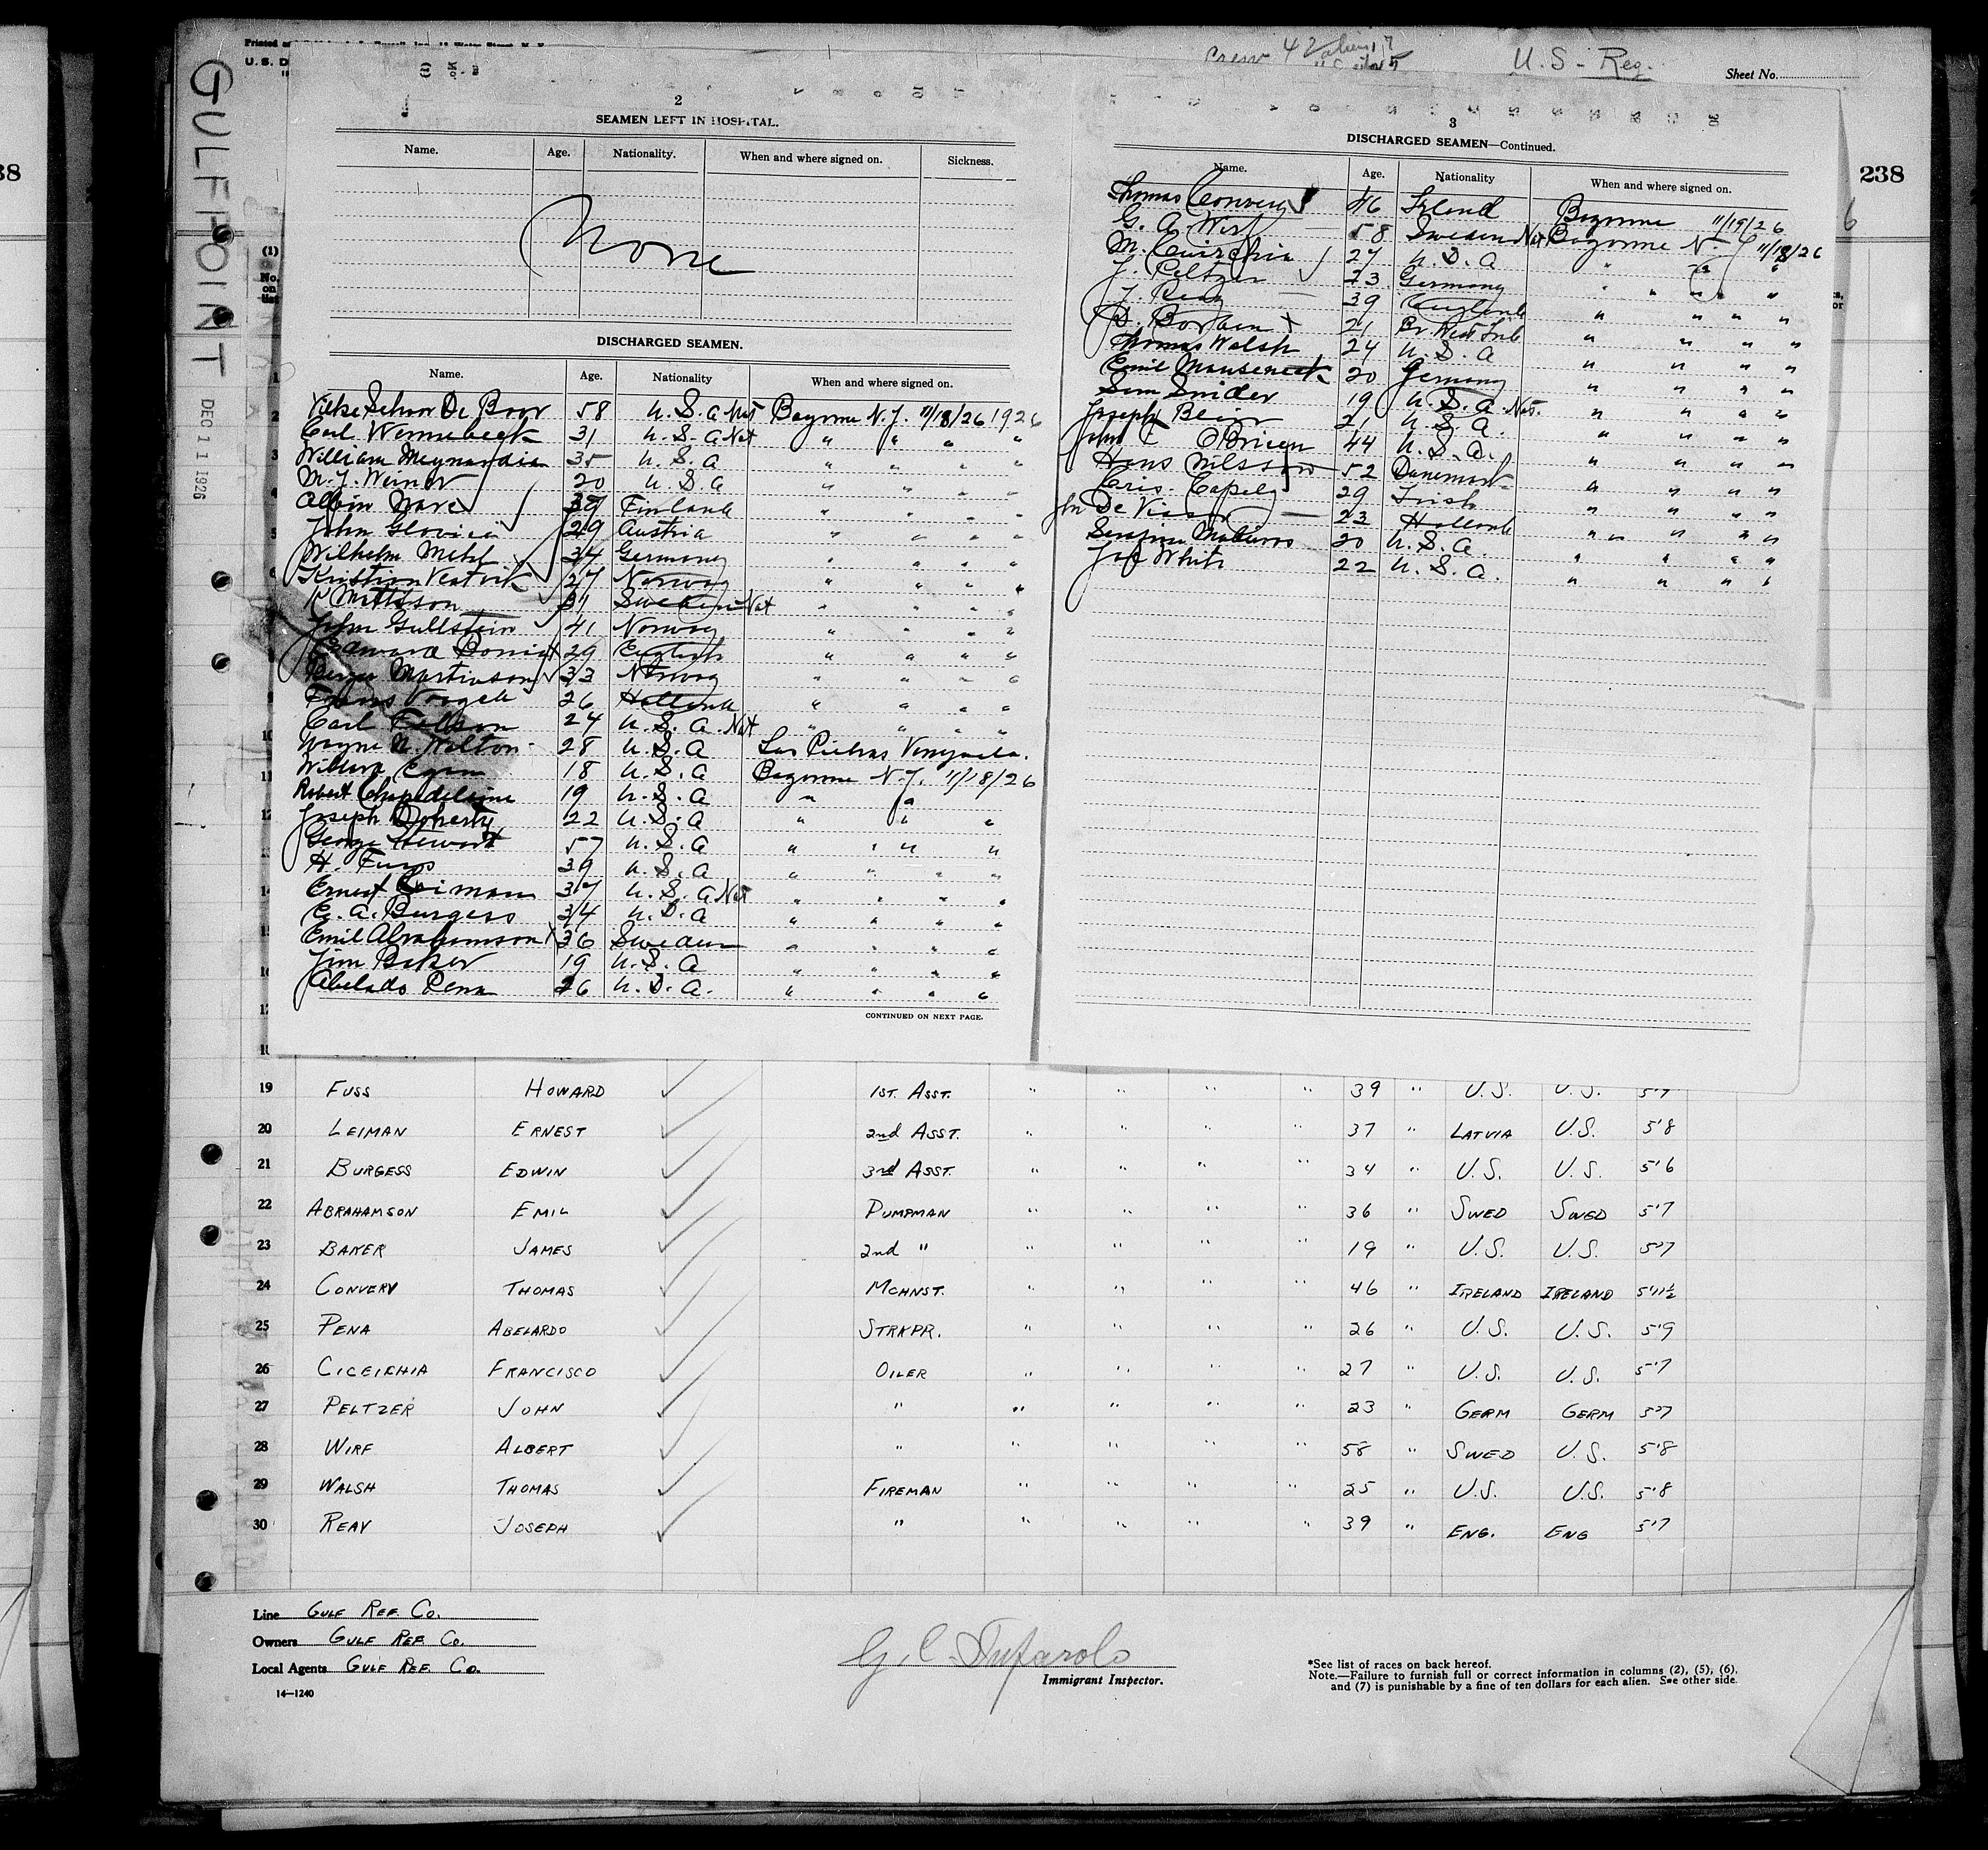 238
GULFPOINT DEC 11 1926
U. S. D
Crew 42
U.S - Reg.
Sheet No.
2
SEAMEN LEFT IN HOSPITAL.
Name. Age. Nationality. When and where signed on. Sickness.
None
DISCHARGED SEAMEN.
Name. Age. Nationality When and where signed on.
De Boor 58 U.S.A Nat Bayonne N.J. 11/18/26 1926
Carl Wennebeck 31 U.S.A Nat " " " "
William Meynardie 35 U.S.A " " " "
M.J. Weiner 20 U.S.A " " " "
Albin 39 Finland " " " "
John 29 Austria " " " "
Wilhelm 34 Germany " " " "
Kristian 27 Norway " " " "
K Mattsson 31 Sweden Nat " " " "
John Gullstein 41 Norway " " " "
Edward 29 English " " " "
Martinson 33 Norway " " " "
Frans 26 Holland " " " "
Carl 24 U.S.A. Nat " " " "
Wayne N. Walton 28 U.S.A Las Piedras Venezuela.
Egan 18 U.S.A Bayonne N.J. 11/18/26
Robert Chapdelaine 19 U.S.A " "
Joseph Doherty 22 U.S.A " " "
George Stewart 57 U.S.A " " " "
H. Fuss 39 U.S.A " " " "
Ernest Leiman 37 U.S.A Nat " " " "
E. A. Burgess 34 U.S.A " " " "
Emil Abrahamson X 36 Sweden " " " "
Jim Baker 19 U.S.A " " " "
Abelado Pena 26 U.S.A. " " " "
CONTINUED ON NEXT PAGE.
3
DISCHARGED SEAMEN—Continued.
Name. Age. Nationality When and where signed on.
Thomas Convery 46 Ireland Bayonne 11/19/26
G. A. Wirf 58 Sweden Nat Bayonne N.J 11/18/26
M. 27 U.S.A " " "
J. Peltzer 23 Germany " " " "
J. Reay 39 England " " " "
D. X 21 Br. West Ind " " " "
Thomas Walsh 24 U.S.A " " " "
Emil 20 Germany " " " "
Sam Snider 19 U.S.A Nat. " " " "
Joseph 21 U.S.A. " " " "
John C OBrien 44 U.S.A. " " " "
Hans Nilsson 52 Denmark " " " "
Cris. 29 Irish " " " "
Jhn De Visser 23 Holland " " " "
Serafin 20 U.S.A. " " " "
Joe White 22 U.S.A. " " " "
19 FUSS HOWARD 1ST. ASST. " " " " 39 " U.S. U.S. 5'7
20 LEIMAN ERNEST 2nd ASST. " " " " 37 " LATVIA U.S. 5'8
21 BURGESS EDWIN 3rd ASST. " " " " 34 " U.S. U.S. 5'6
22 ABRAHAMSON EMIL PUMPMAN " " " " 36 " SWED SWED 5'7
23 BAKER JAMES 2nd " " " " " 19 " U.S. U.S. 5'7
24 CONVERY THOMAS MCHNST. " " " " 46 " IRELAND IRELAND 5'11½
25 PENA ABELARDO STRKPR. " " " " 26 " U.S. U.S. 5'9
26 CICEIRHIA FRANCISCO OILER " " " " 27 " U.S. U.S. 5'7
27 PELTZER JOHN " " " " " 23 " GERM GERM 5'7
28 WIRF ALBERT " " " " " 58 " SWED U.S. 5'8
29 WALSH THOMAS FIREMAN " " " " 25 " U.S. U.S. 5'8
30 REAY JOSEPH " " " " " 39 " ENG. ENG 5'7
Line GULF REF. CO.
Owners GULF REF. CO.
Local Agents GULF REF. CO.
14—1240
Immigrant Inspector.
*See list of races on back hereof.
Note.—Failure to furnish full or correct information in columns (2), (5), (6),
and (7) is punishable by a fine of ten dollars for each alien. See other side.